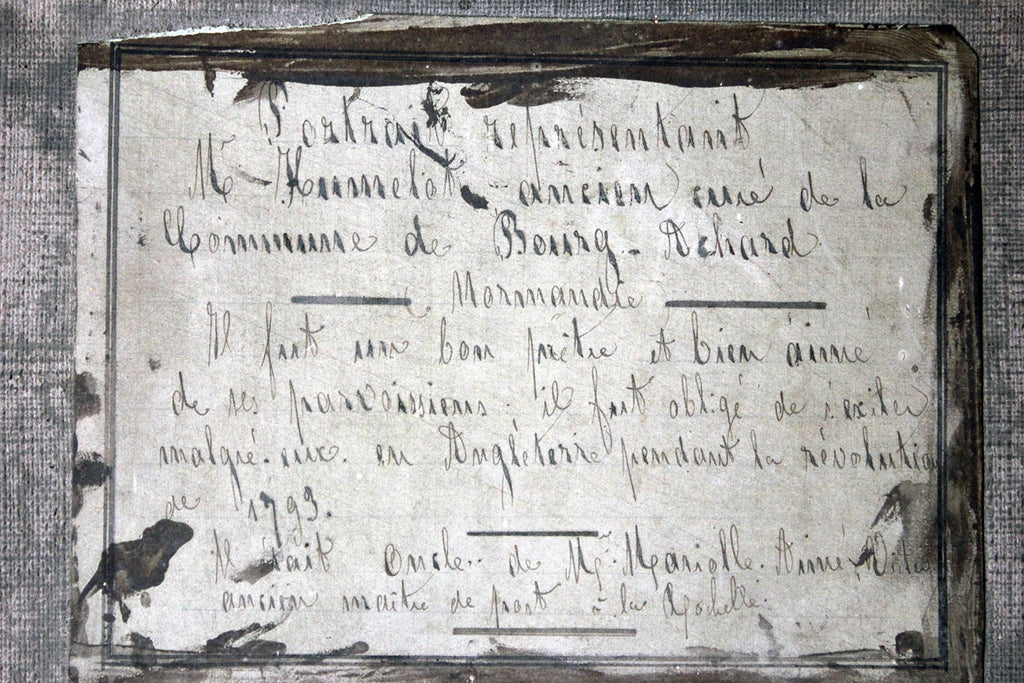 Portrait représentant
Mr Humelot ancien curé de la
Commune de Bourg-Achard
Normandie
Il fut un bon prêtre et bien aimé
de ses parroissiens. il fut obligé de s'exiler
malgré-eux. en Angleterre pendant la révolution
de 1793.
Il était Oncle de Mr. Mariolle. Aimé,
ancien maître de port à la Rochelle.